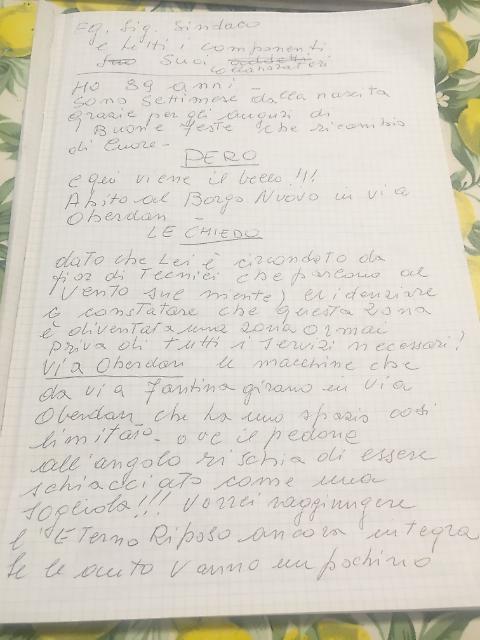 Eg. Sig. Sindaco
e tutti i componenti
Suoi
collaboratori
Ho 89 anni -
Sono Settimese dalla nascita
Grazie per gli auguri di
Buone Feste che ricambio
di Cuore -
PERO
e qui viene il bello!!!
Abito al Borgo Nuovo in via
Oberdan -
LE CHIEDO
dato che Lei è circondato da
fior di Tecnici (che parlano al
Vento sul niente) evidenziare
e constatare che questa zona
è diventata una zona ormai
priva di tutti i servizi necessari!
Via Oberdan le macchine che
da via Fantina girano in via
Oberdan che ha uno spazio così
limitato - ove il pedone
all'angolo rischia di essere
schiacciato come una
sogliola!!! Vorrei raggiungere
l'Eterno Riposo ancora integra
Se le auto vanno un pochino